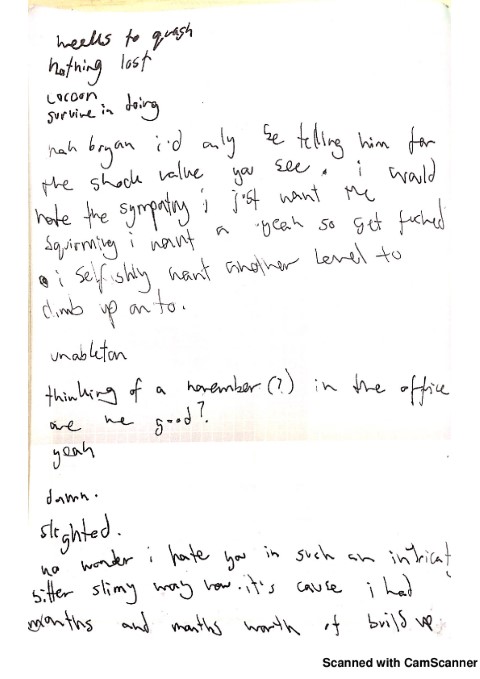 weeks to quash
nothing lost
cocoon
survive in doing
nah bryan i'd only be telling him for
the shock value you see. i would
hate the sympathy i just want the
squirming i want a yeah so get fucked
i selfishly want another level to
climb up on to.
unableton
thinking of a november (?) in the office
are we good?
yeah
damn.
slighted.
no wonder i hate you in such an intricat
bitter slimy way now. it's cause i had
months and months worth of build up
Scanned with CamScanner